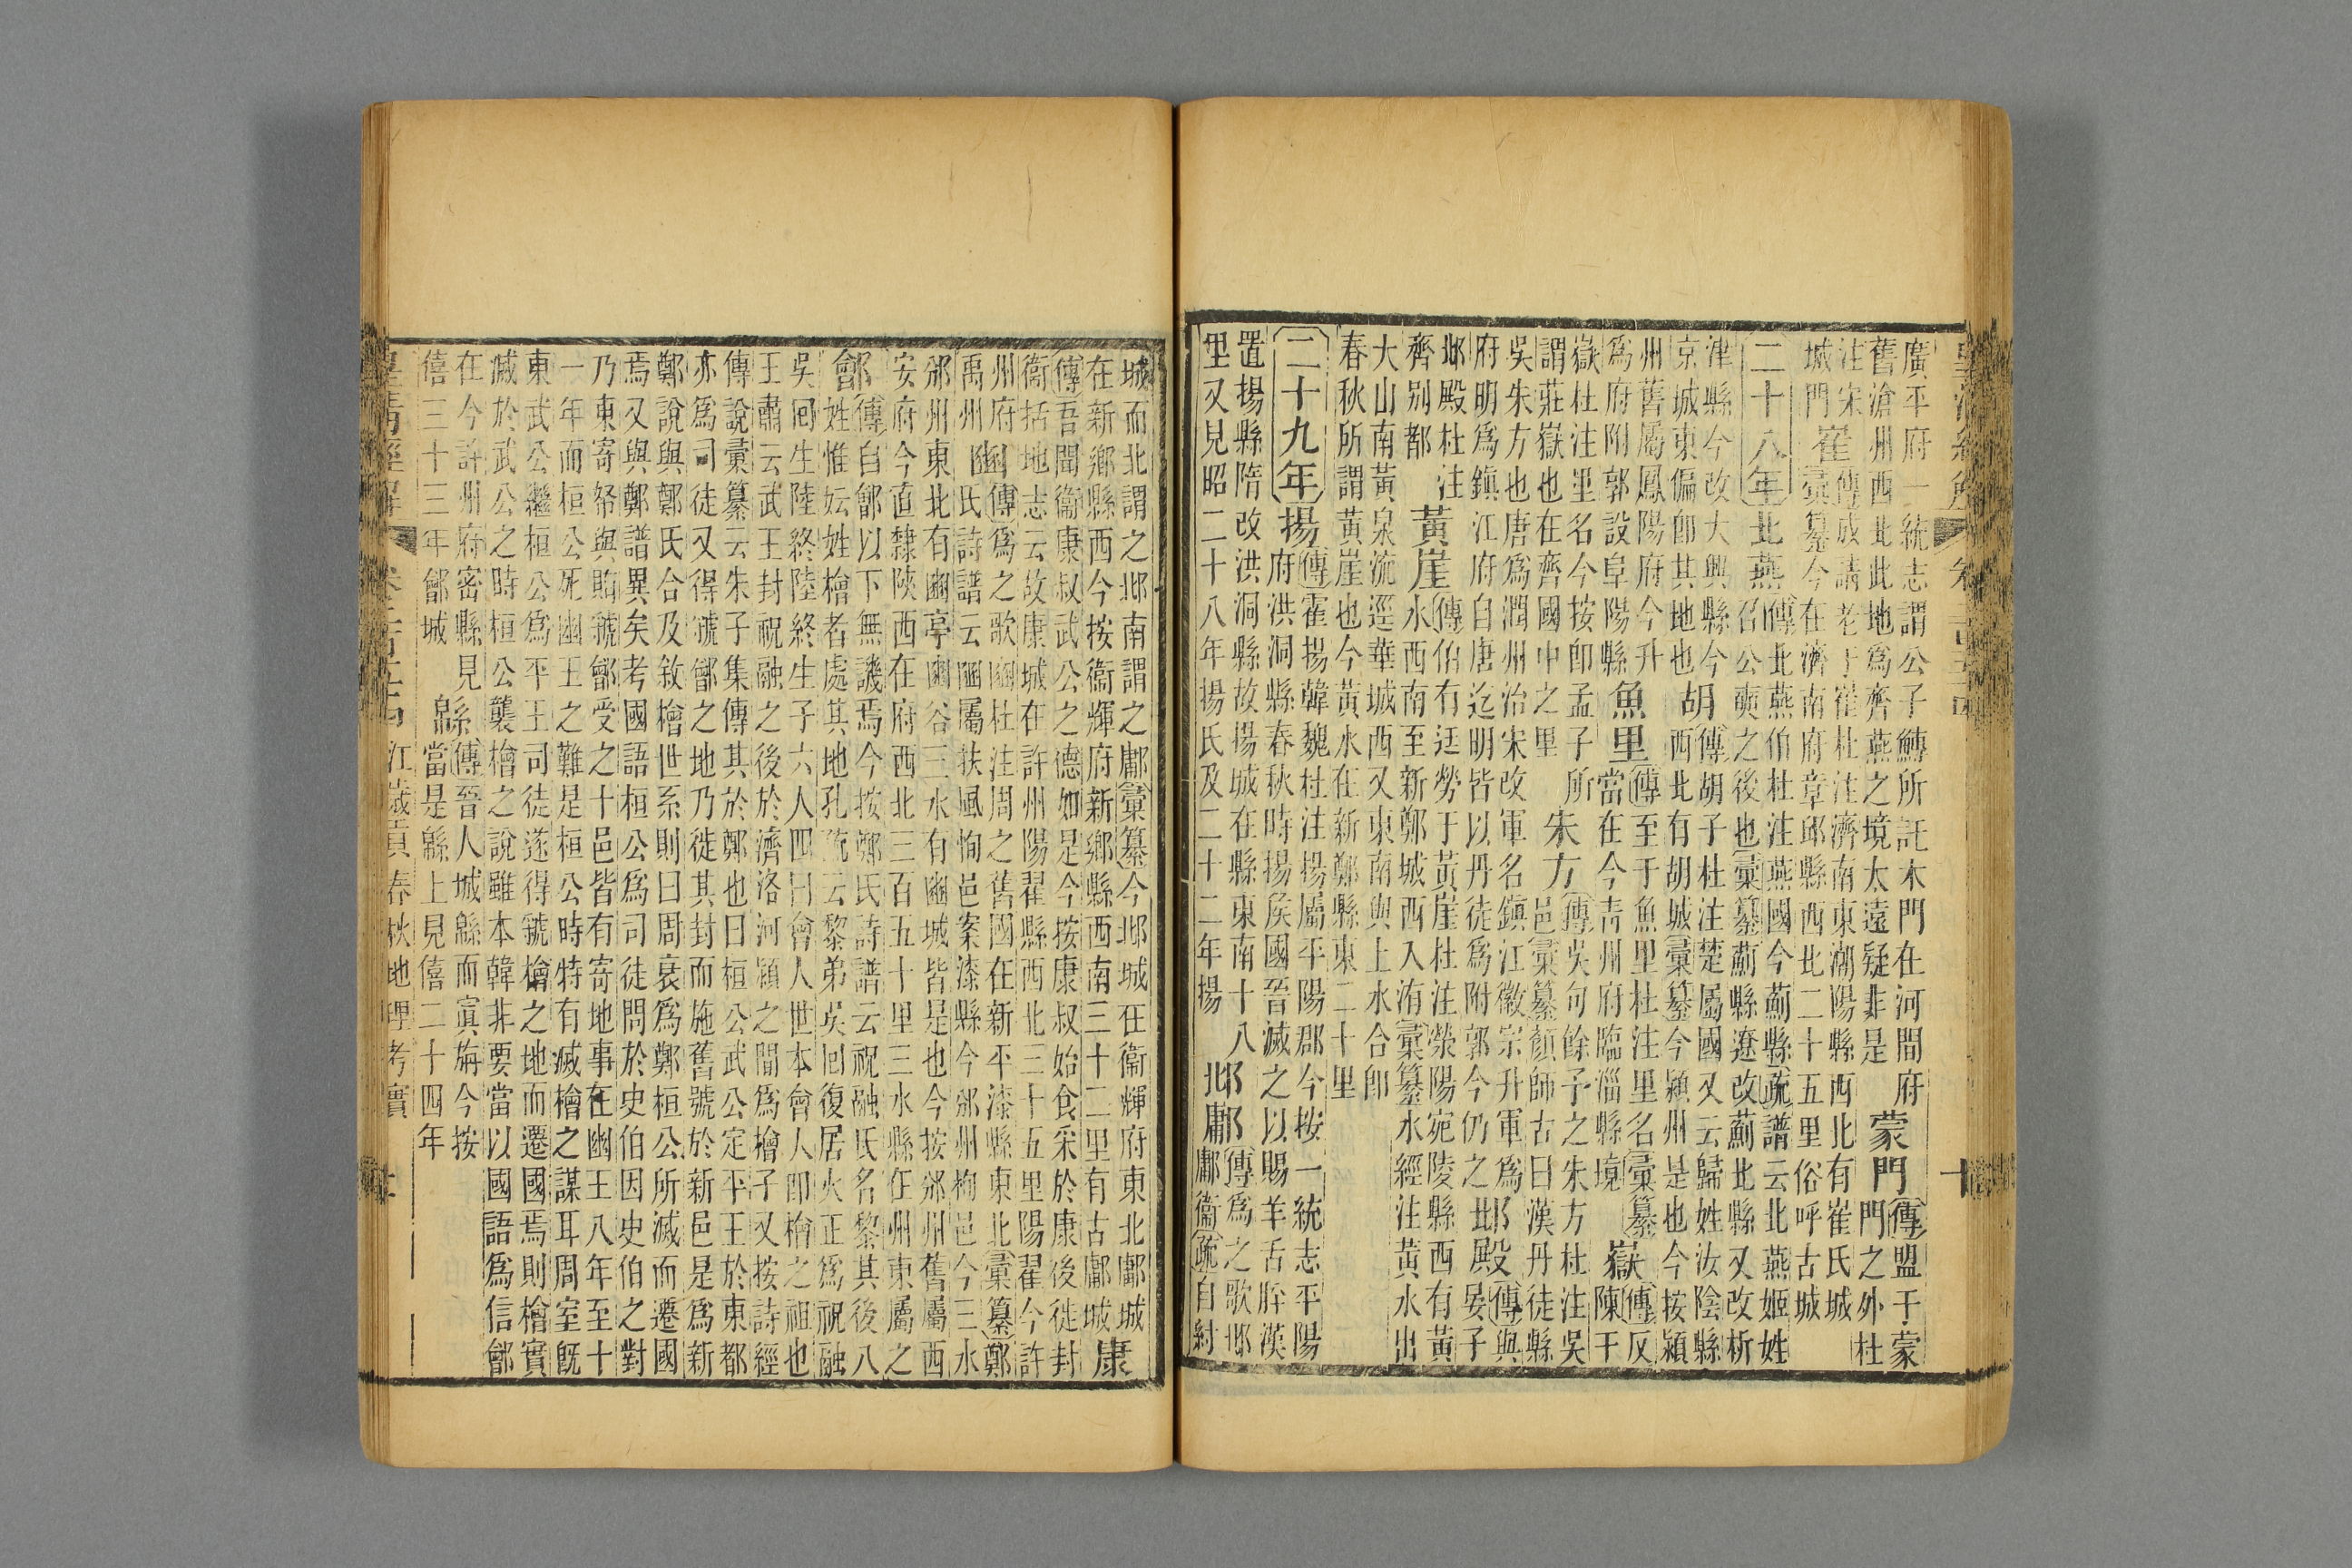 廣平府一統志謂公子鱄所託木門在河間府
舊滄州西北此地爲齊燕之境太遠疑非是
蒙門
傳盟于蒙
門之外杜
注宋
城門
崔
傳成請老于崔杜注濟南東潮陽縣西北有崔氏城
彙纂今在濟南府章邱縣西北二十五里俗呼古城
二十八年
北燕
傳北燕伯杜注燕國今薊縣疏譜云北燕姬姓
召公奭之後也彙纂薊縣遼改薊北縣又改析
津縣今改大興縣今
京城東偏卽其地也
胡
傳胡子杜注楚屬國又云歸姓汝陰縣
西北有胡城彙纂今潁州是也今按潁
州舊屬鳳陽府今升
爲府附郭設阜陽縣
魚里
傳至于魚里杜注里名彙纂
當在今青州府臨淄縣境
嶽
傳反
陳于
嶽杜注里名今按卽孟子所
謂莊嶽也在齊國中之里
朱方
傳吳句餘予之朱方杜注吳
邑彙纂顏師古曰漢丹徒縣
吳朱方也唐爲潤州治宋改軍名鎮江徽宗升軍爲
府明爲鎮江府自唐迄明皆以丹徒爲附郭今仍之
邶殿
傳與
晏子
邶殿杜注
齊別都
黃崖
傳伯有迋勞于黃崖杜注滎陽宛陵縣西有黃
水西南至新鄭城西入洧彙纂水經注黃水出
大山南黃泉流逕華城西又東南與上水合卽
春秋所謂黃崖也今黃水在新鄭縣東二十里
二十九年
揚
傳霍揚韓魏杜注揚屬平陽郡今按一統志平陽
府洪洞縣春秋時揚侯國晉滅之以賜羊舌肸漢
置揚縣隋改洪洞縣故揚城在縣東南十八
里又見昭二十八年揚氏及二十二年揚
邶鄘
傳爲之歌邶
鄘衞疏自紂
城而北謂之邶南謂之鄘彙纂今邶城在衞輝府東北鄘城
在新鄉縣西今按衞輝府新鄉縣西南三十二里有古鄘城
康
傳吾聞衞康叔武公之德如是今按康叔始食采於康後徙封
衞括地志云故康城在許州陽翟縣西北三十五里陽翟今許
州府
禹州
豳
傳爲之歌豳杜注周之舊國在新平漆縣東北彙纂鄭
氏詩譜云豳屬扶風栒邑案漆縣今邠州栒邑今三水
邠州東北有豳亭豳谷三水有豳城皆是也今按邠州舊屬西
安府今直隸陝西在府西北三百五十里三水縣在州東屬之
鄶
傳自鄶以下無譏焉今按鄭氏詩譜云祝融氏名黎其後八
姓惟妘姓檜者處其地孔疏云黎弟吳回復居火正爲祝融
吳回生陸終陸終生子六人四曰會人世本會人卽檜之祖也
王肅云武王封祝融之後於濟洛河潁之間爲檜子又按詩經
傳說彙纂云朱子集傳其於鄭也曰桓公武公定平王於東都
亦爲司徒又得虢鄶之地乃徙其封而施舊號於新邑是爲新
鄭說與鄭氏合及敘檜世系則曰周衰爲鄭桓公所滅而遷國
焉又與鄭譜異矣考國語桓公爲司徒問於史伯因史伯之對
乃東寄帑與賄虢鄶受之十邑皆有寄地事在幽王八年至十
一年而桓公死幽王之難是桓公時特有滅檜之謀耳周室旣
東武公繼桓公爲平王司徒遂得虢檜之地而遷國焉則檜實
滅於武公之時桓公襲檜之說雖本韓非要當以國語爲信鄶
在今許州府密縣見
僖三十三年鄶城
緜
傳晉人城緜而寘旃今按
當是緜上見僖二十四年
江徵君春秋地理考實